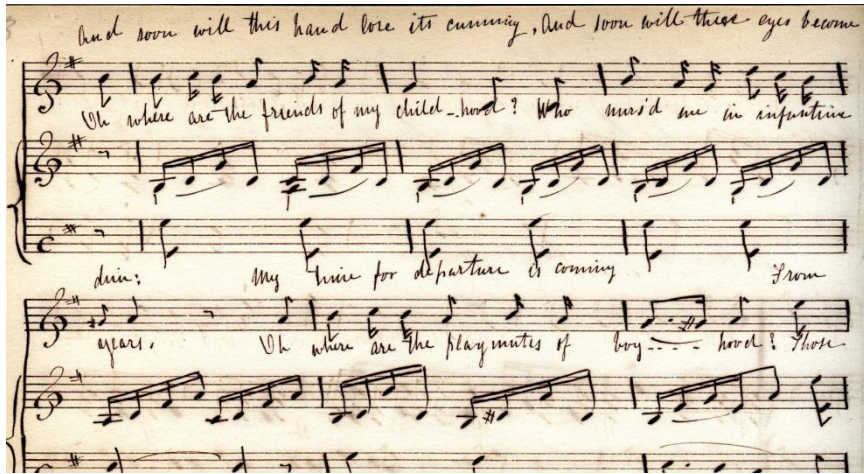 And soon will this hand lose its cunning, And soon will these eyes become
Oh where are the friends of my child-hood? Who nurs'd me in infantine
dim; My time for departure is coming From
years. Oh where are the playmates of boy---- hood? Those